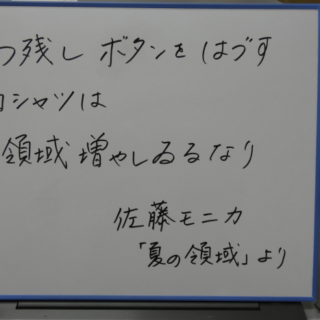 つ残し ボタンを はづす
ロシャツは
領域 増やしゐるなり
佐藤モニカ
「夏の領域」より